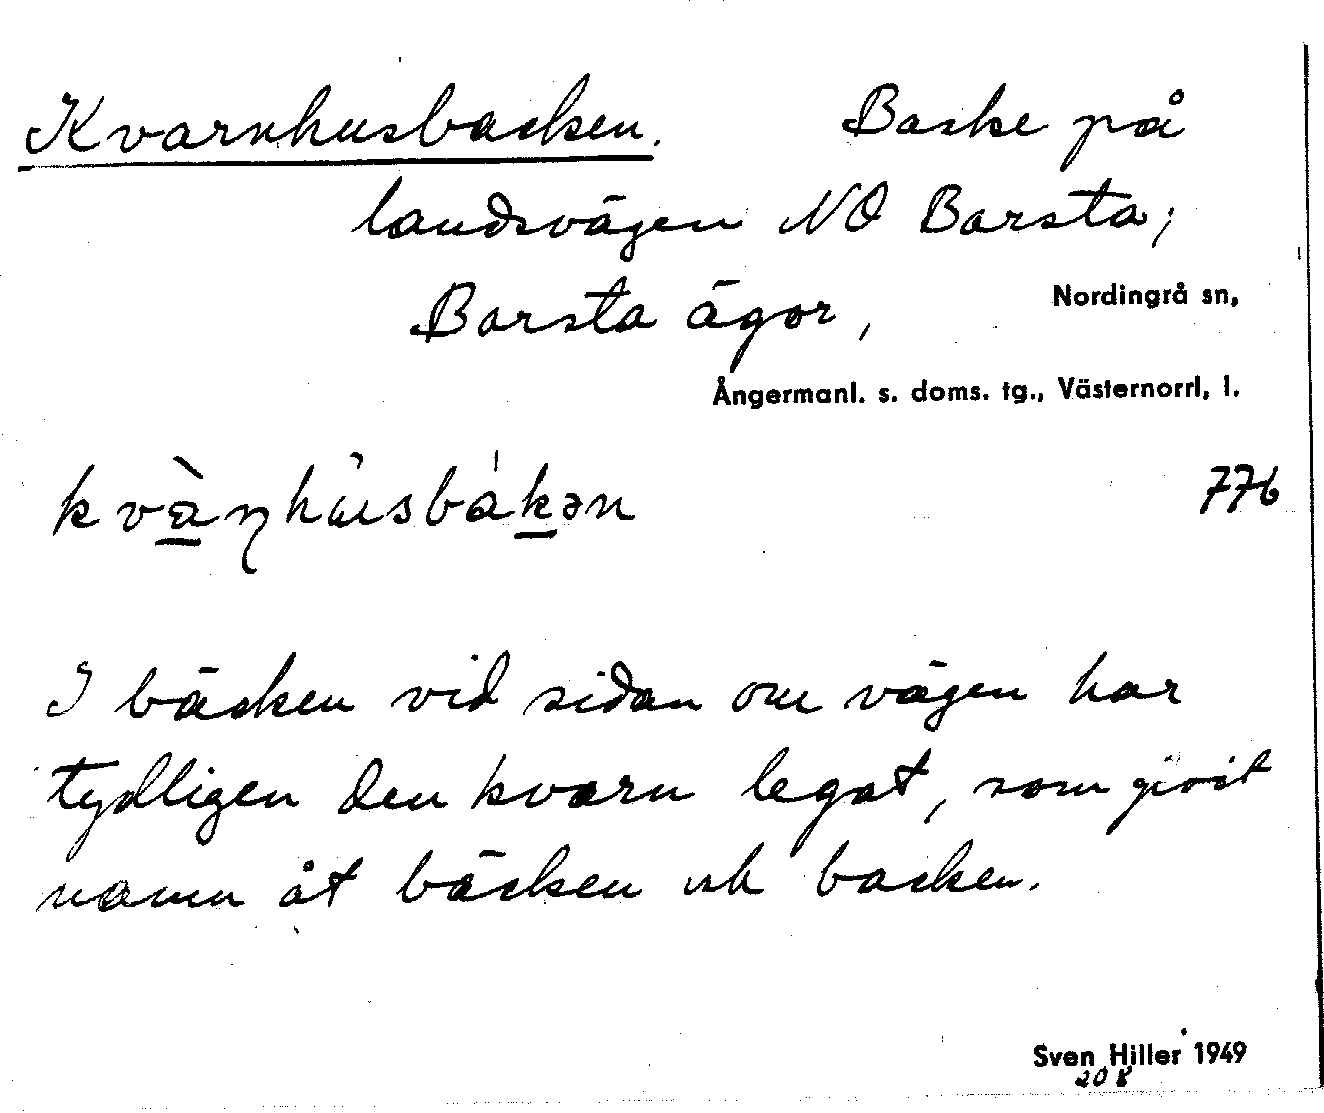 Kvarnhusbacken. Backe på
landsvägen NO Barsta;
Barsta ägor, Nordingrå sn,
Ångermanl. s. doms. tg., Västernorrl, l.
776
I bäcken vid sidan om vägen har
tydligen den kvarn legat, som givit
namn åt bäcken och backen.
Sven Hiller 1949
20 8